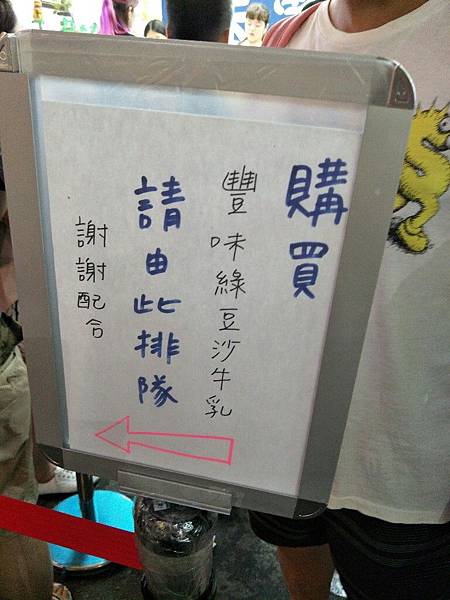 購買
豐味綠豆沙牛乳
請由此排隊
謝謝配合